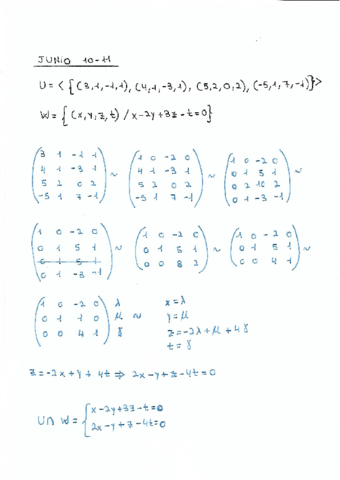 JUNIO 10-11
U = < {(3,1,-1,1), (4,1,-3,1), (5,2,0,2), (-5,1,7,-1)} >
W = {(x,y,z,t) / x-2y+3z-t=0}
3 1 -1 1
4 1 -3 1
5 2 0 2
-5 1 7 -1
~
1 0 -2 0
4 1 -3 1
5 2 0 2
-5 1 7 -1
~
1 0 -2 0
0 1 5 1
0 2 10 2
0 1 -3 -1
1 0 -2 0
0 1 5 1
0 1 5 1
0 1 -3 -1
~
1 0 -2 0
0 1 5 1
0 0 8 2
~
1 0 -2 0
0 1 5 1
0 0 4 1
~
1 0 -2 0 λ
0 1 1 0 μ
0 0 4 1 γ
x=λ
y=μ
z=-2λ+μ+4γ
t=γ
z=-2x+y+4t ⇒ 2x-y+z-4t=0
U∩W = { x-2y+3z-t=0
2x-y+z-4t=0